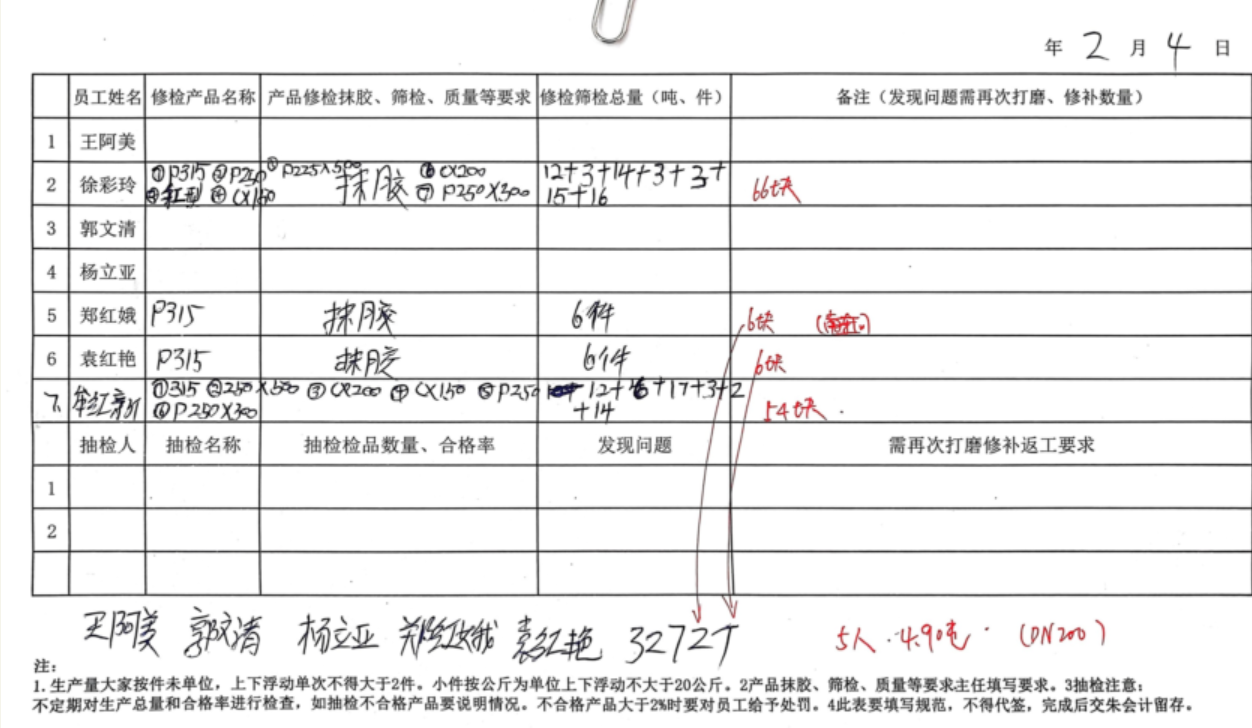 年 2 月 4 日
员工姓名 修检产品名称 产品修检抹胶、筛检、质量等要求 修检筛检总量（吨、件） 备注（发现问题需再次打磨、修补数量）
1 王阿美
2 徐彩玲 ①P315 ②P250 ⑤P225X500 抹胶 ⑥CX200 12+3+14+3+3+ 66块
④CX150 ⑦P250X300 15+16
3 郭文清
4 杨立亚
5 郑红娥 P315 抹胶 6件 6块
6 袁红艳 P315 抹胶 6件 6块
7. ①315 ②250X500 ③CX200 ④CX150 ⑤P250 12+16+17+3+2 54块.
⑥P250X300 +14
抽检人 抽检名称 抽检检品数量、合格率 发现问题 需再次打磨修补返工要求
1
2
王阿美 郭文清 杨立亚 郑红娥 袁红艳 327 5人.4.90吨. (DN200)
注：
1.生产量大家按件未单位，上下浮动单次不得大于2件。小件按公斤为单位上下浮动不大于20公斤。2产品抹胶、筛检、质量等要求主任填写要求。3抽检注意：
不定期对生产总量和合格率进行检查，如抽检不合格产品要说明情况。不合格产品大于2%时要对员工给予处罚。4此表要填写规范，不得代签，完成后交朱会计留存。